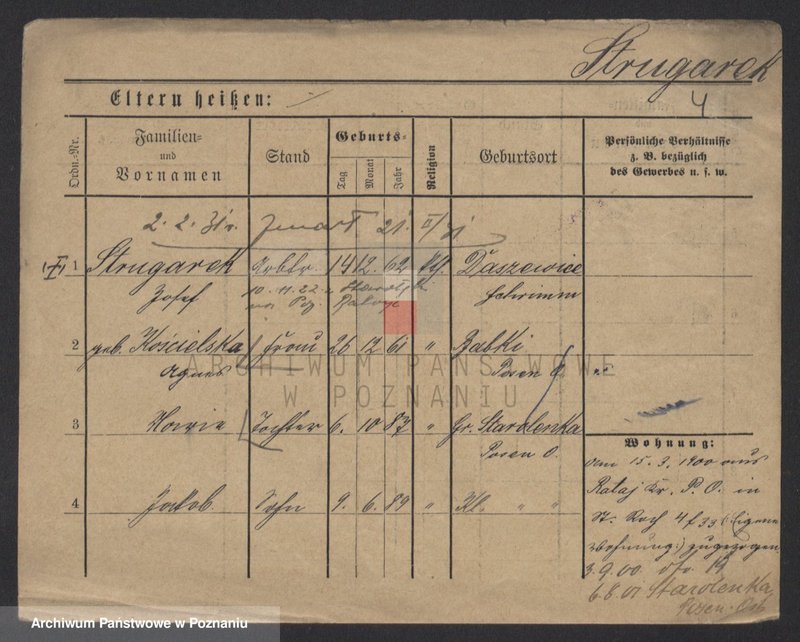 Strugarek
Eltern heißen:
4
Ordn.-Nr.
Familien-
und
Vornamen
Stand
Geburts-
Tag
Monat
Jahr
Religion
Geburtsort
Persönliche Verhältnisse
z. B. bezüglich
des Gewerbes u. s. w.
2. 2. 31 21.
1 Strugarek Arbtr. 14 12. 62 kth. Daszewice
Josef Schrimm
10. 11. 22
2 geb. Kościelska Frau 26 12 61 " Babki
Agnes Posen O.
3 Marie Tochter 6. 10 87 " Gr. Starolenka
Posen O.
4 Jakob Sohn 9. 6. 89 " Kl. " "
Wohnung:
vom 15. 3. 1900 aus
Rataj Kr. P. O. in
St. Roch 4 (Eigene
Wohnung:) zugezogen
3. 9. 00.
6. 8. 01 Starolenka,
Posen-Ost
ARCHIWUM PAŃSTWOWE
W POZNANIU
Archiwum Państwowe w Poznaniu